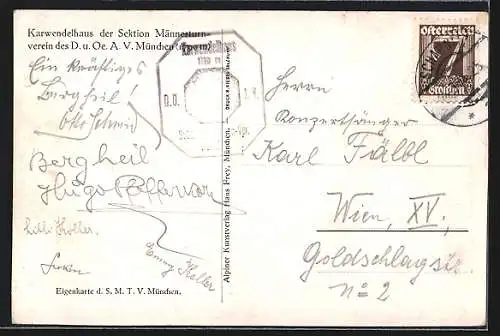 Karwendelhaus der Sektion Männerturn-
verein des D. u. Oe. A. V. München
Ein kräftiges
Bergheil!
Otto Schmid
Bergheil
Hugo
Koller.
Emmy Koller
Eigenkarte d. S. M. T. V. München.
Alpiner Kunstverlag Hans Frey, München.
Karwendelhaus
Österreich
7
Groschen
Herrn
Konzertsänger
Karl Fälbl
Wien, XV,
Goldschlagstr.
No 2